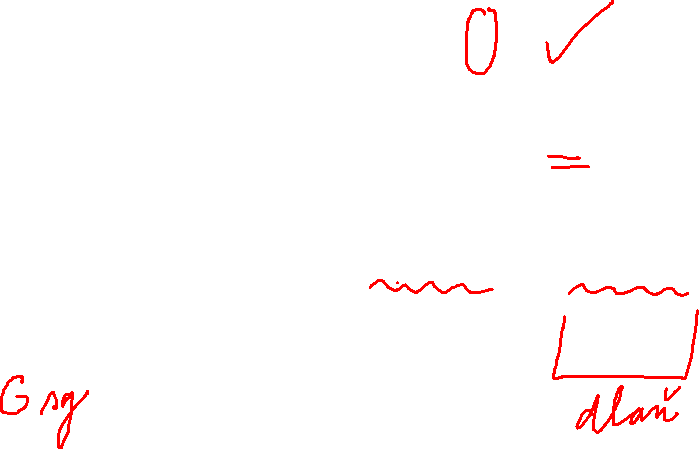 0 ✓
=
G sg dlaň